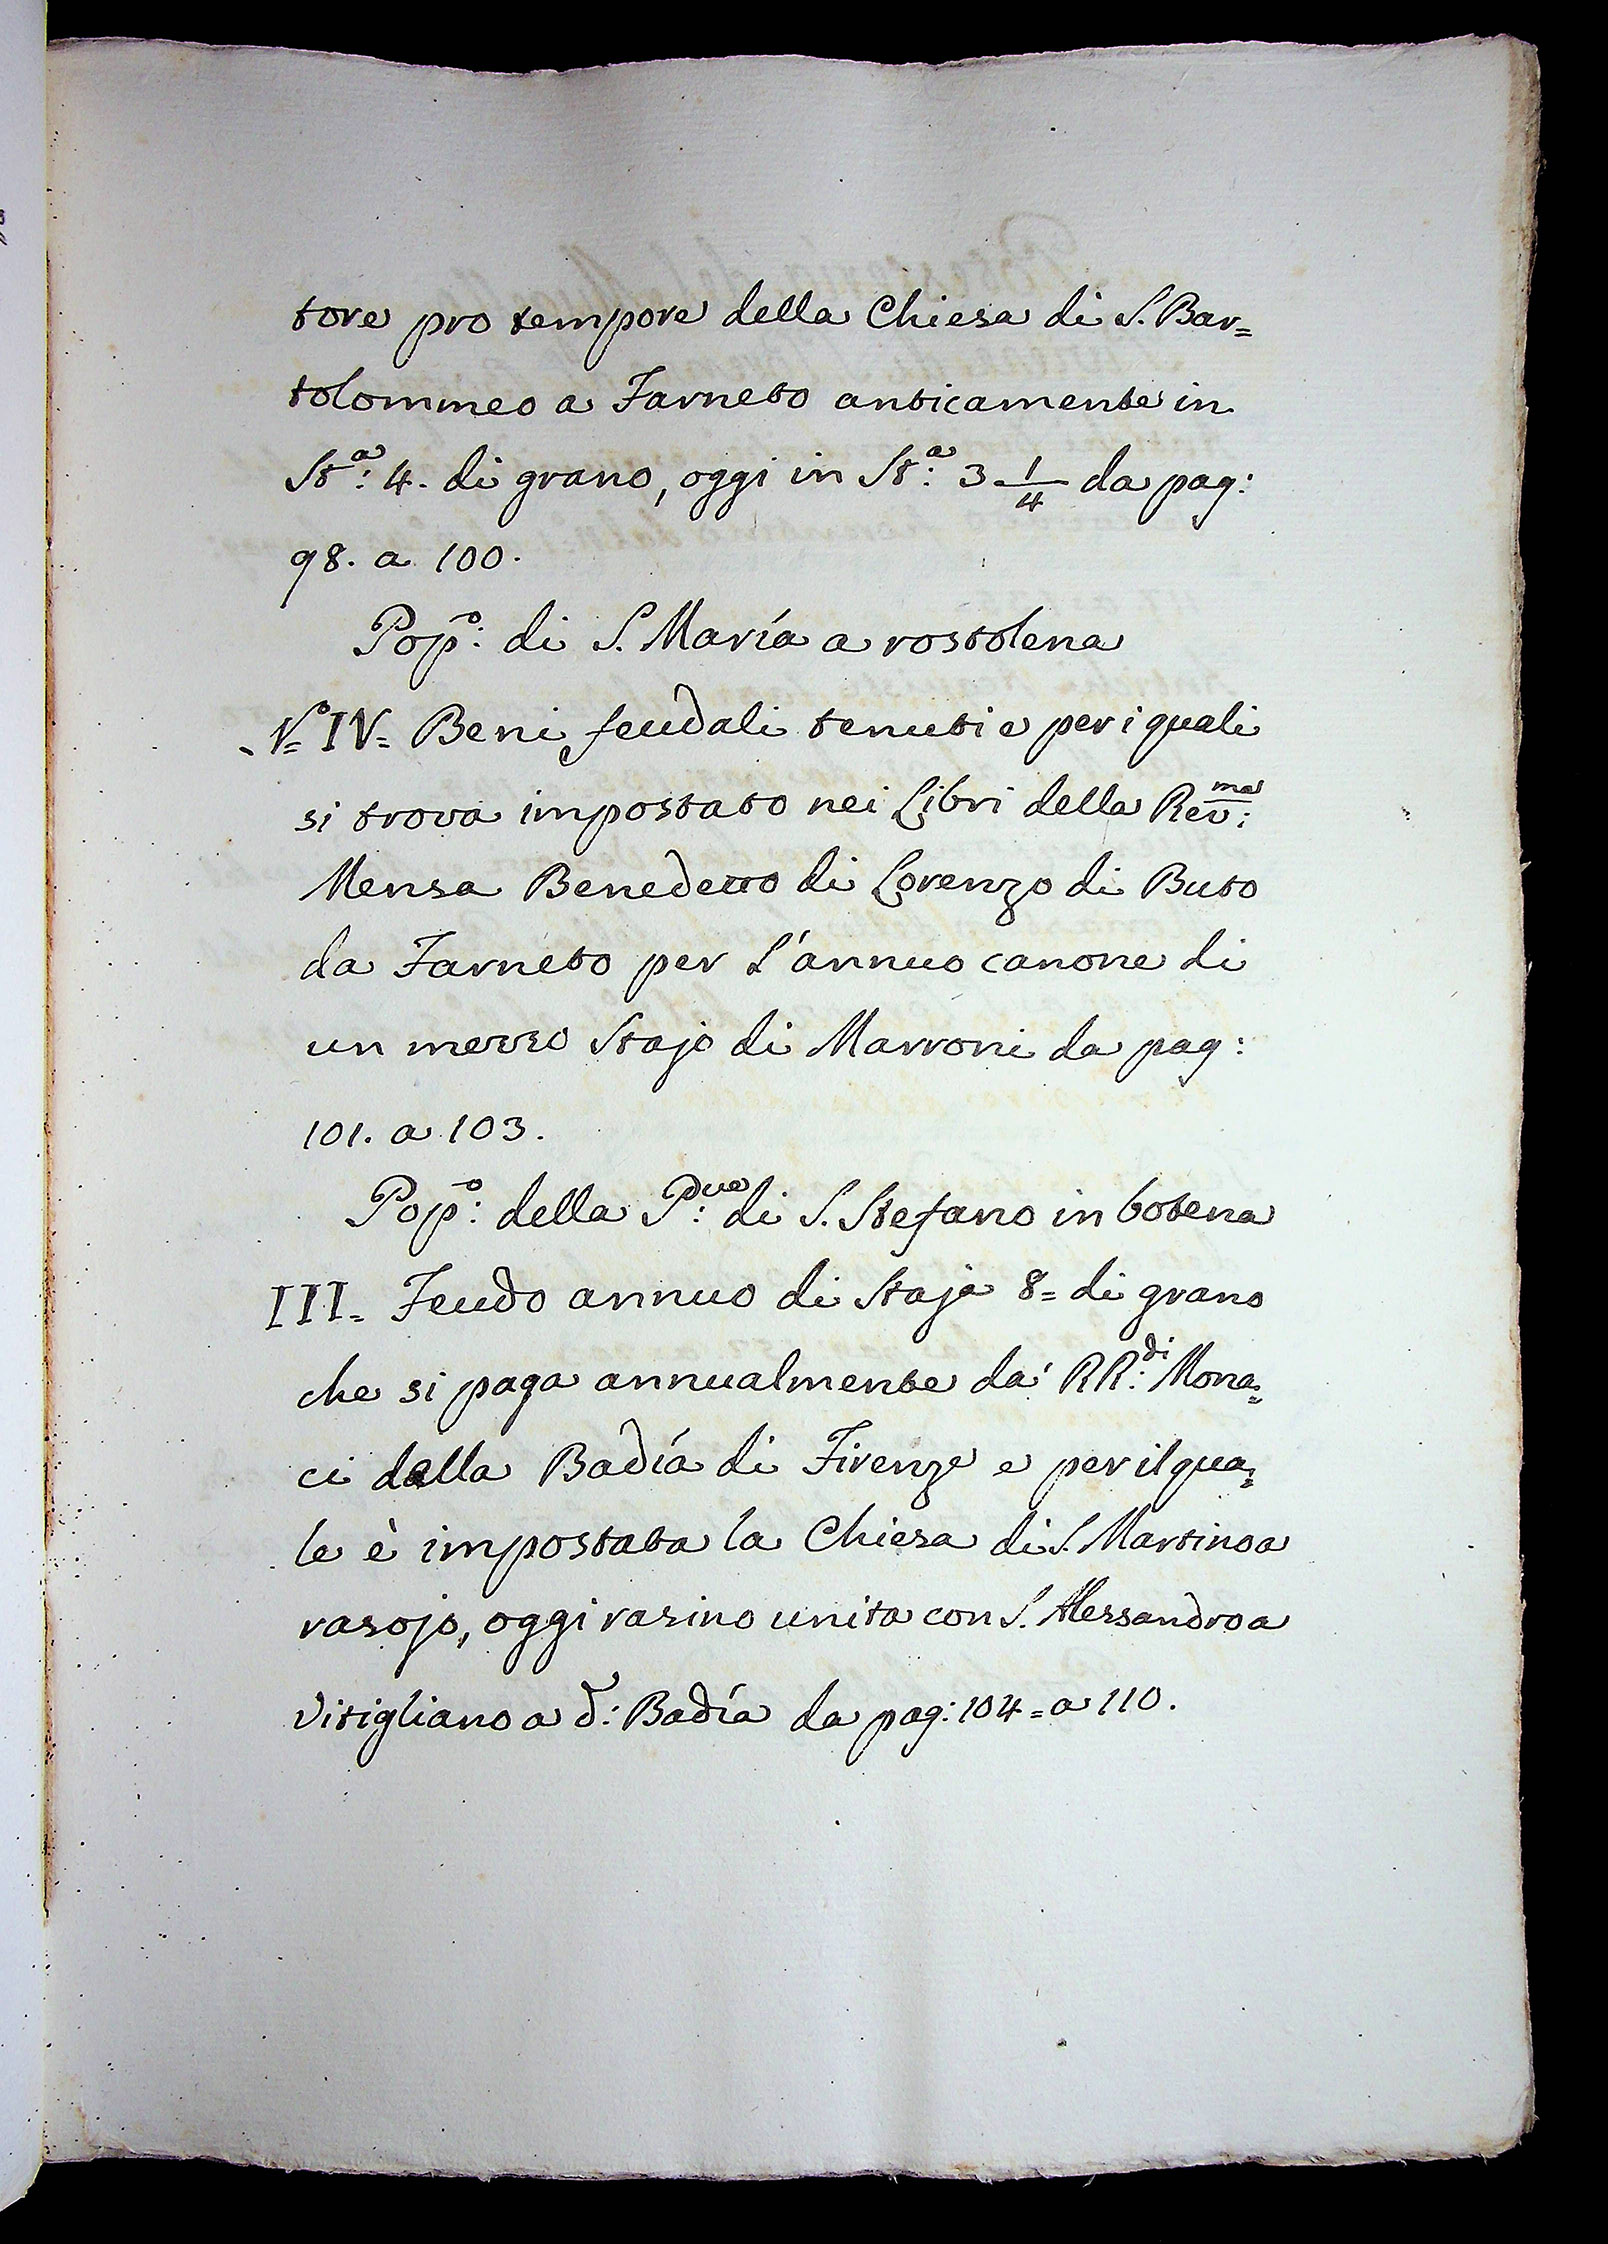 tore pro tempore della Chiesa di S. Bar=
tolommeo a Farneto anticamente in
St.ª: 4. di grano, oggi in St.ª: 3 1/4 da pag:
98. a 100.
Pop.º: di S. María a rostolena
N.º IV= Beni feudali tenuti e per i quali
si trova impostato nei Libri della Rev:ma
Mensa Benedetto di Lorenzo di Buto
da Farneto per l'annuo canone di
un mezzo Stajo di Marroni da pag:
101. a 103.
Pop.º: della P:ve di S. Stefano in botena
III= Feudo annuo di Staja 8= di grano
che si paga annualmente da' RR:di Mona=
ci della Badía di Firenze e per il qua=
le è impostata la Chiesa di S. Martino a
rasojo, oggi rasino unita con S. Alessandro a
Vitigliano a d: Badía da pag: 104= a 110.